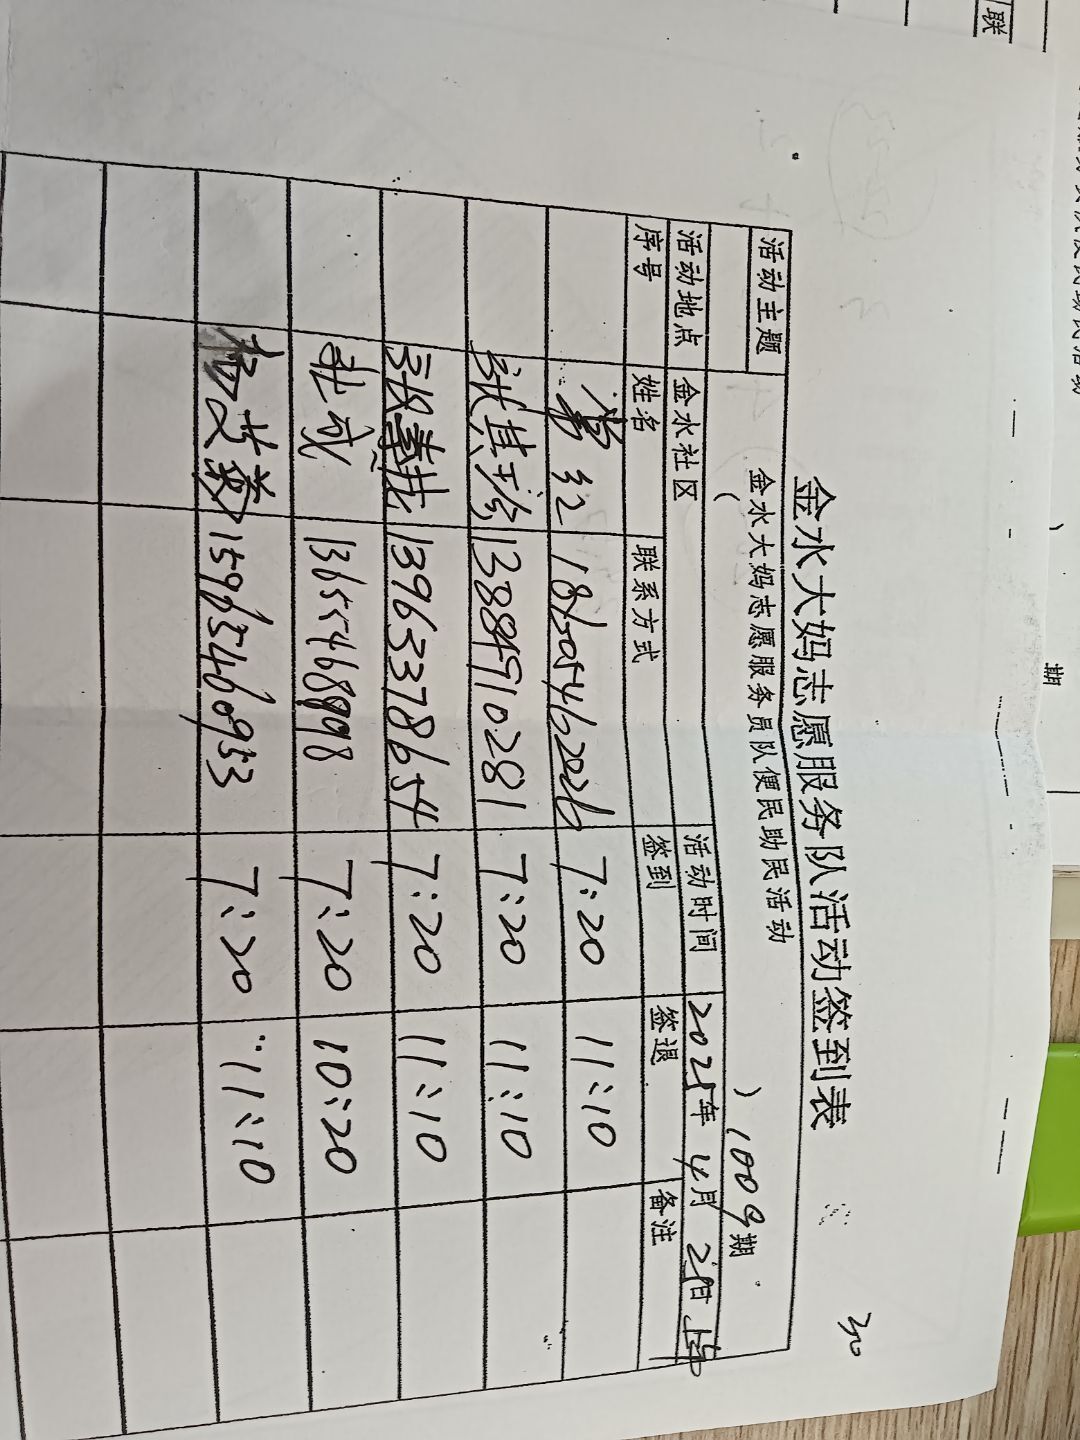 金水大妈志愿服务队活动签到表
30
活动主题 金水大妈志愿服务员队便民助民活动
( ) 1009期
活动地点 金水社区 活动时间 2025年 4月 日 上午
序号 姓名 联系方式 签到 签退 备注
7:20 11:10
张其珍 138849710281 7:20 11:10
13963378654 7:20 11:10
杜成 13655468898 7:20 10:20
15965460933 7:20 11:10
联
期